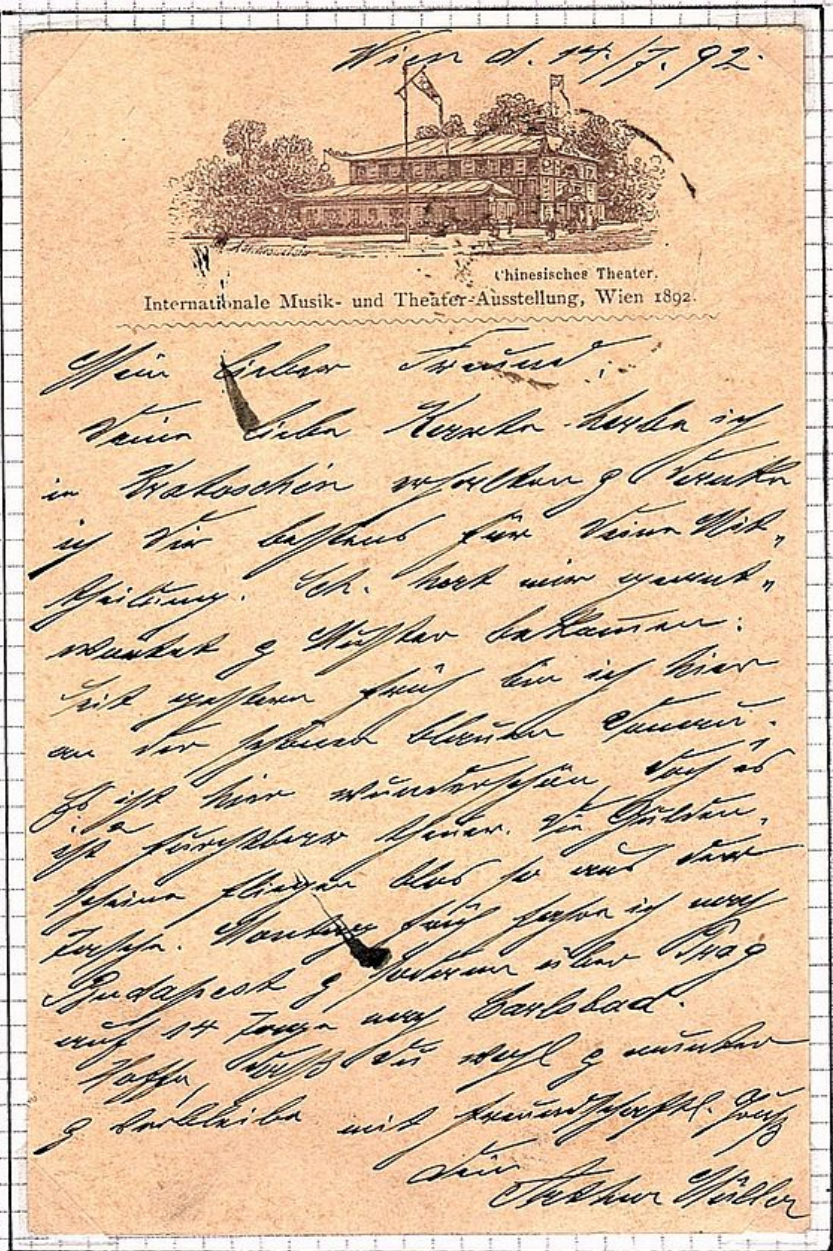 Wien d. 14./7. 92.
Chinesisches Theater.
Internationale Musik- und Theater-Ausstellung, Wien 1892.
Mein lieber Freund!
Deine liebe Karte habe ich
in Krotoschin erhalten & danke
ich Dir bestens für Deine Mit„
theilung. Sch. hat mir geant„
wortet & Muster bekommen.
Seit gestern früh bin ich hier
an der schönen blauen Donau.
Es ist hier wunderschön, doch es
ist furchtbar theuer. Die Gulden„
scheine fliegen blos so aus der
Tasche. Montag früh fahre ich nach
Budapest & sodann über Prag
auf 14 Tage nach Carlsbad.
Hoffe, daß Du wohl & munter
& verbleibe mit freundschaftl. Gruß
Dein
Arthur Müller